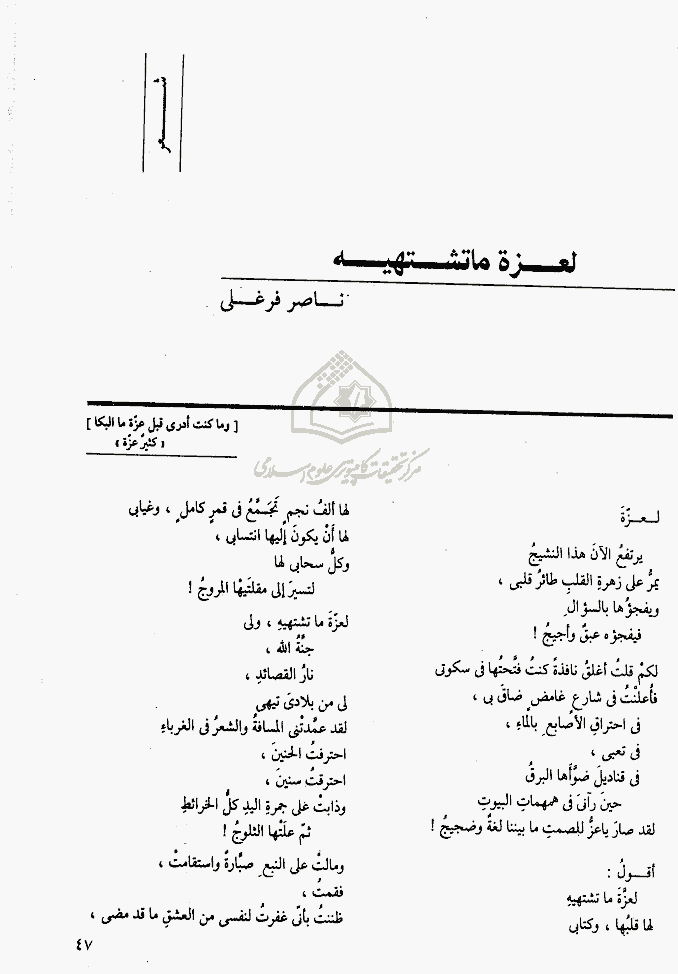 شـــعر
لعـــزة ماتشـــتهيـــه
نـــاصر فرغـــلى
[ وما كنت أدرى قبل عزّة ما البكا ]
« كثيرُ عزّة »
مركز تحقيقات كامپيوترى علوم اسلامى
لـعـزّةَ
يرتفعُ الآنَ هذا النشيجُ
يمرُّ على زهرةِ القلبِ طائرُ قلبى ،
ويفجؤُها بالسؤالِ
فيفجؤه عبقٌ وأجيجُ !
لكمْ قلتُ أغلقُ نافذةً كنتُ فتَّحتُها فى سكوتى
فأعلنْتُ فى شارعٍ غامضٍ ضاقَ بى ،
فى احتراقِ الأصابعِ بالماءِ ،
فى تعبى ،
فى قناديلَ ضوَّأها البرقُ
حينَ رآنىَ فى همهماتِ البيوتِ
لقد صارَ ياعزُّ للصمتِ ما بيننا لغةٌ وضجيجُ !
أقـــولُ :
لعزَّةَ ما تشتهيهِ
لها قلبُها ، وكتابى
لها ألفُ نجمٍ تَجَمَّعُ فى قمرٍ كاملٍ ، وغيابى
لها أنْ يكونَ إليها انتسابى ،
وكلُّ سحابى لها
لتسيرَ إلى مقلتَيْها المروجُ !
لعزّةَ ما تشتهيهِ ، ولى
جنَّةُ الله ،
نارُ القصائدِ ،
لى من بلادىَ تيهى
لقد عمَّدتْنى المسافةُ والشعرُ فى الغرباءِ
احترفتُ الحنينَ ،
احترقتُ سنينَ ،
وذابتْ على جمرةِ اليدِ كلُّ الخرائطِ
ثمّ علَتْها الثلوجُ !
ومالتْ على النبعِ صبَّارةٌ واستقامتْ ،
فقمتُ ،
ظننتُ بأنّى غفرتُ لنفسى من العشقِ ما قد مضى ،
٤٧